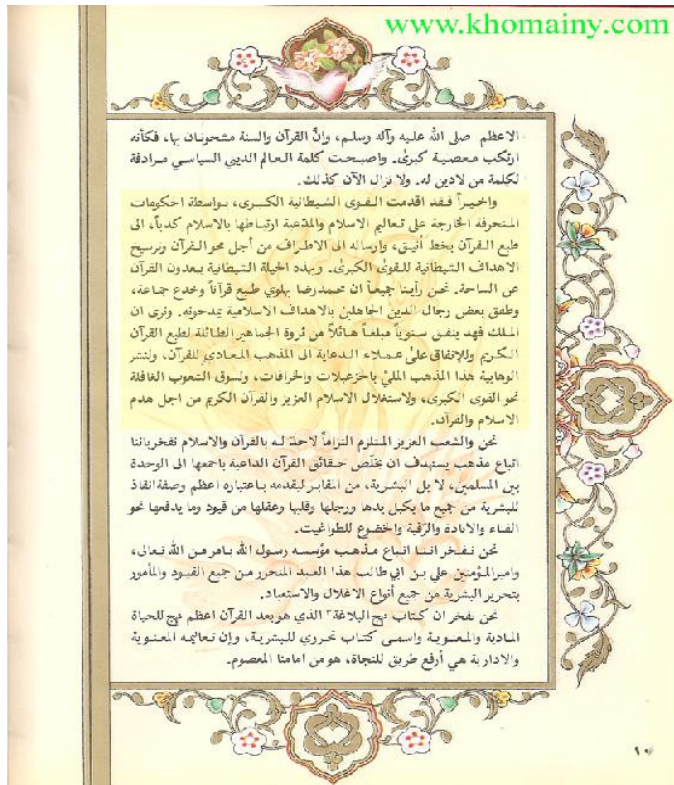 www.khomainy.com
الاعظم صلى الله عليه وآله وسلم، وانَّ القرآن والسنة مشحونـان بها، فكأنه
ارتكب معصية كبرىٰ. واصبحت كلمة العالم الديني السياسي مرادفة
لكلمة من لادين له. ولا تزال الآن كذلك.
واخيراً فقد اقدمت القوى الشيطانية الكبرى، بواسطة الحكومات
المنحرفة الخارجة على تعاليم الاسلام والمدّعية ارتباطها بالاسلام كذباً، الى
طبع القرآن بخط أنيق، وارساله الى الاطراف من أجل محو القرآن وترسيخ
الاهداف الشيطانية للقوىٰ الكبرىٰ. وبهذه الحيلة الشيطانية يبعدون القرآن
عن الساحة. نحن رأينا جميعاً ان محمد رضا بهلوي طبع قرآناً وخدع جماعة،
وطفق بعض رجال الدين الجاهلين بالاهداف الاسلامية يمدحونه. ونرى ان
الملك فهد ينفق سنوياً مبلغاً هائلاً من ثروة الجماهير الطائلة لطبع القرآن
الكريم وللإنفاق علىٰ عملاء الدعاية الى المذهب المعادي للقرآن، ولنشر
الوهابية هذا المذهب الملئ بالخزعبلات والخرافات، ولسوق الشعوب الغافلة
نحو القوى الكبرى، ولاستغلال الاسلام العزيز والقرآن الكريم من اجل هدم
الاسلام والقرآن.
نحن والشعب العزيز الملتزم التزاماً لاحدّ له بالقرآن والاسلام نفخر باننا
اتباع مذهب يستهدف ان يخلّص حقائق القرآن الداعية باجمعها الى الوحدة
بين المسلمين، لا بل البشرية، من المقابر ليقدمه باعتباره اعظم وصفة انقاذ
للبشرية من جميع ما يكبل يدها ورجلها وقلبها وعقلها من قيود وما يدفعها نحو
الفناء والابادة والرّقية والخضوع للطواغيت.
نحن نفخر اننا اتباع مذهب مؤسسه رسول الله بامر من الله تعالى،
وامير المؤمنين علي بن ابي طالب هذا العبد المتحرر من جميع القيود والمأمور
بتحرير البشرية من جميع أنواع الاغلال والاستعباد.
نحن نفخر ان كتاب نهج البلاغة٣ الذي هو بعد القرآن اعظم نهج للحياة
المادية والمعنوية واسمى كتاب تحرري للبشرية، وإن تعاليمه المعنوية
والادارية هي أرفع طريق للنجاة، هو من امامنا المعصوم.
١٠